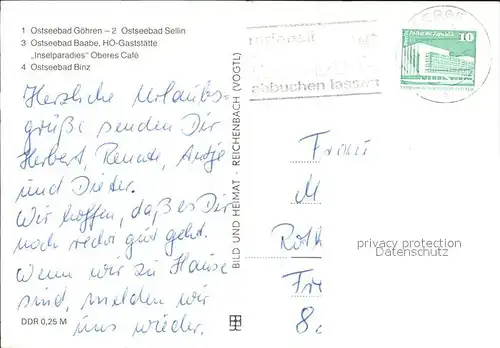 1 Ostseebad Göhren – 2 Ostseebad Sellin
3 Ostseebad Baabe, HO-Gaststätte
„Inselparadies" Oberes Café
4 Ostseebad Binz
Herzliche Urlaubs-
grüße senden Dir
Herbert, Renate, Antje
und Dieter.
Wir hoffen, daß es Dir
noch recht gut geht.
Wenn wir zu Hause
sind, melden wir
uns wieder.
DDR 0,25 M
BILD UND HEIMAT · REICHENBACH (VOGTL)
abbuchen lassen
10
Frau
M
Roth
Fre
8
privacy protection
Datenschutz